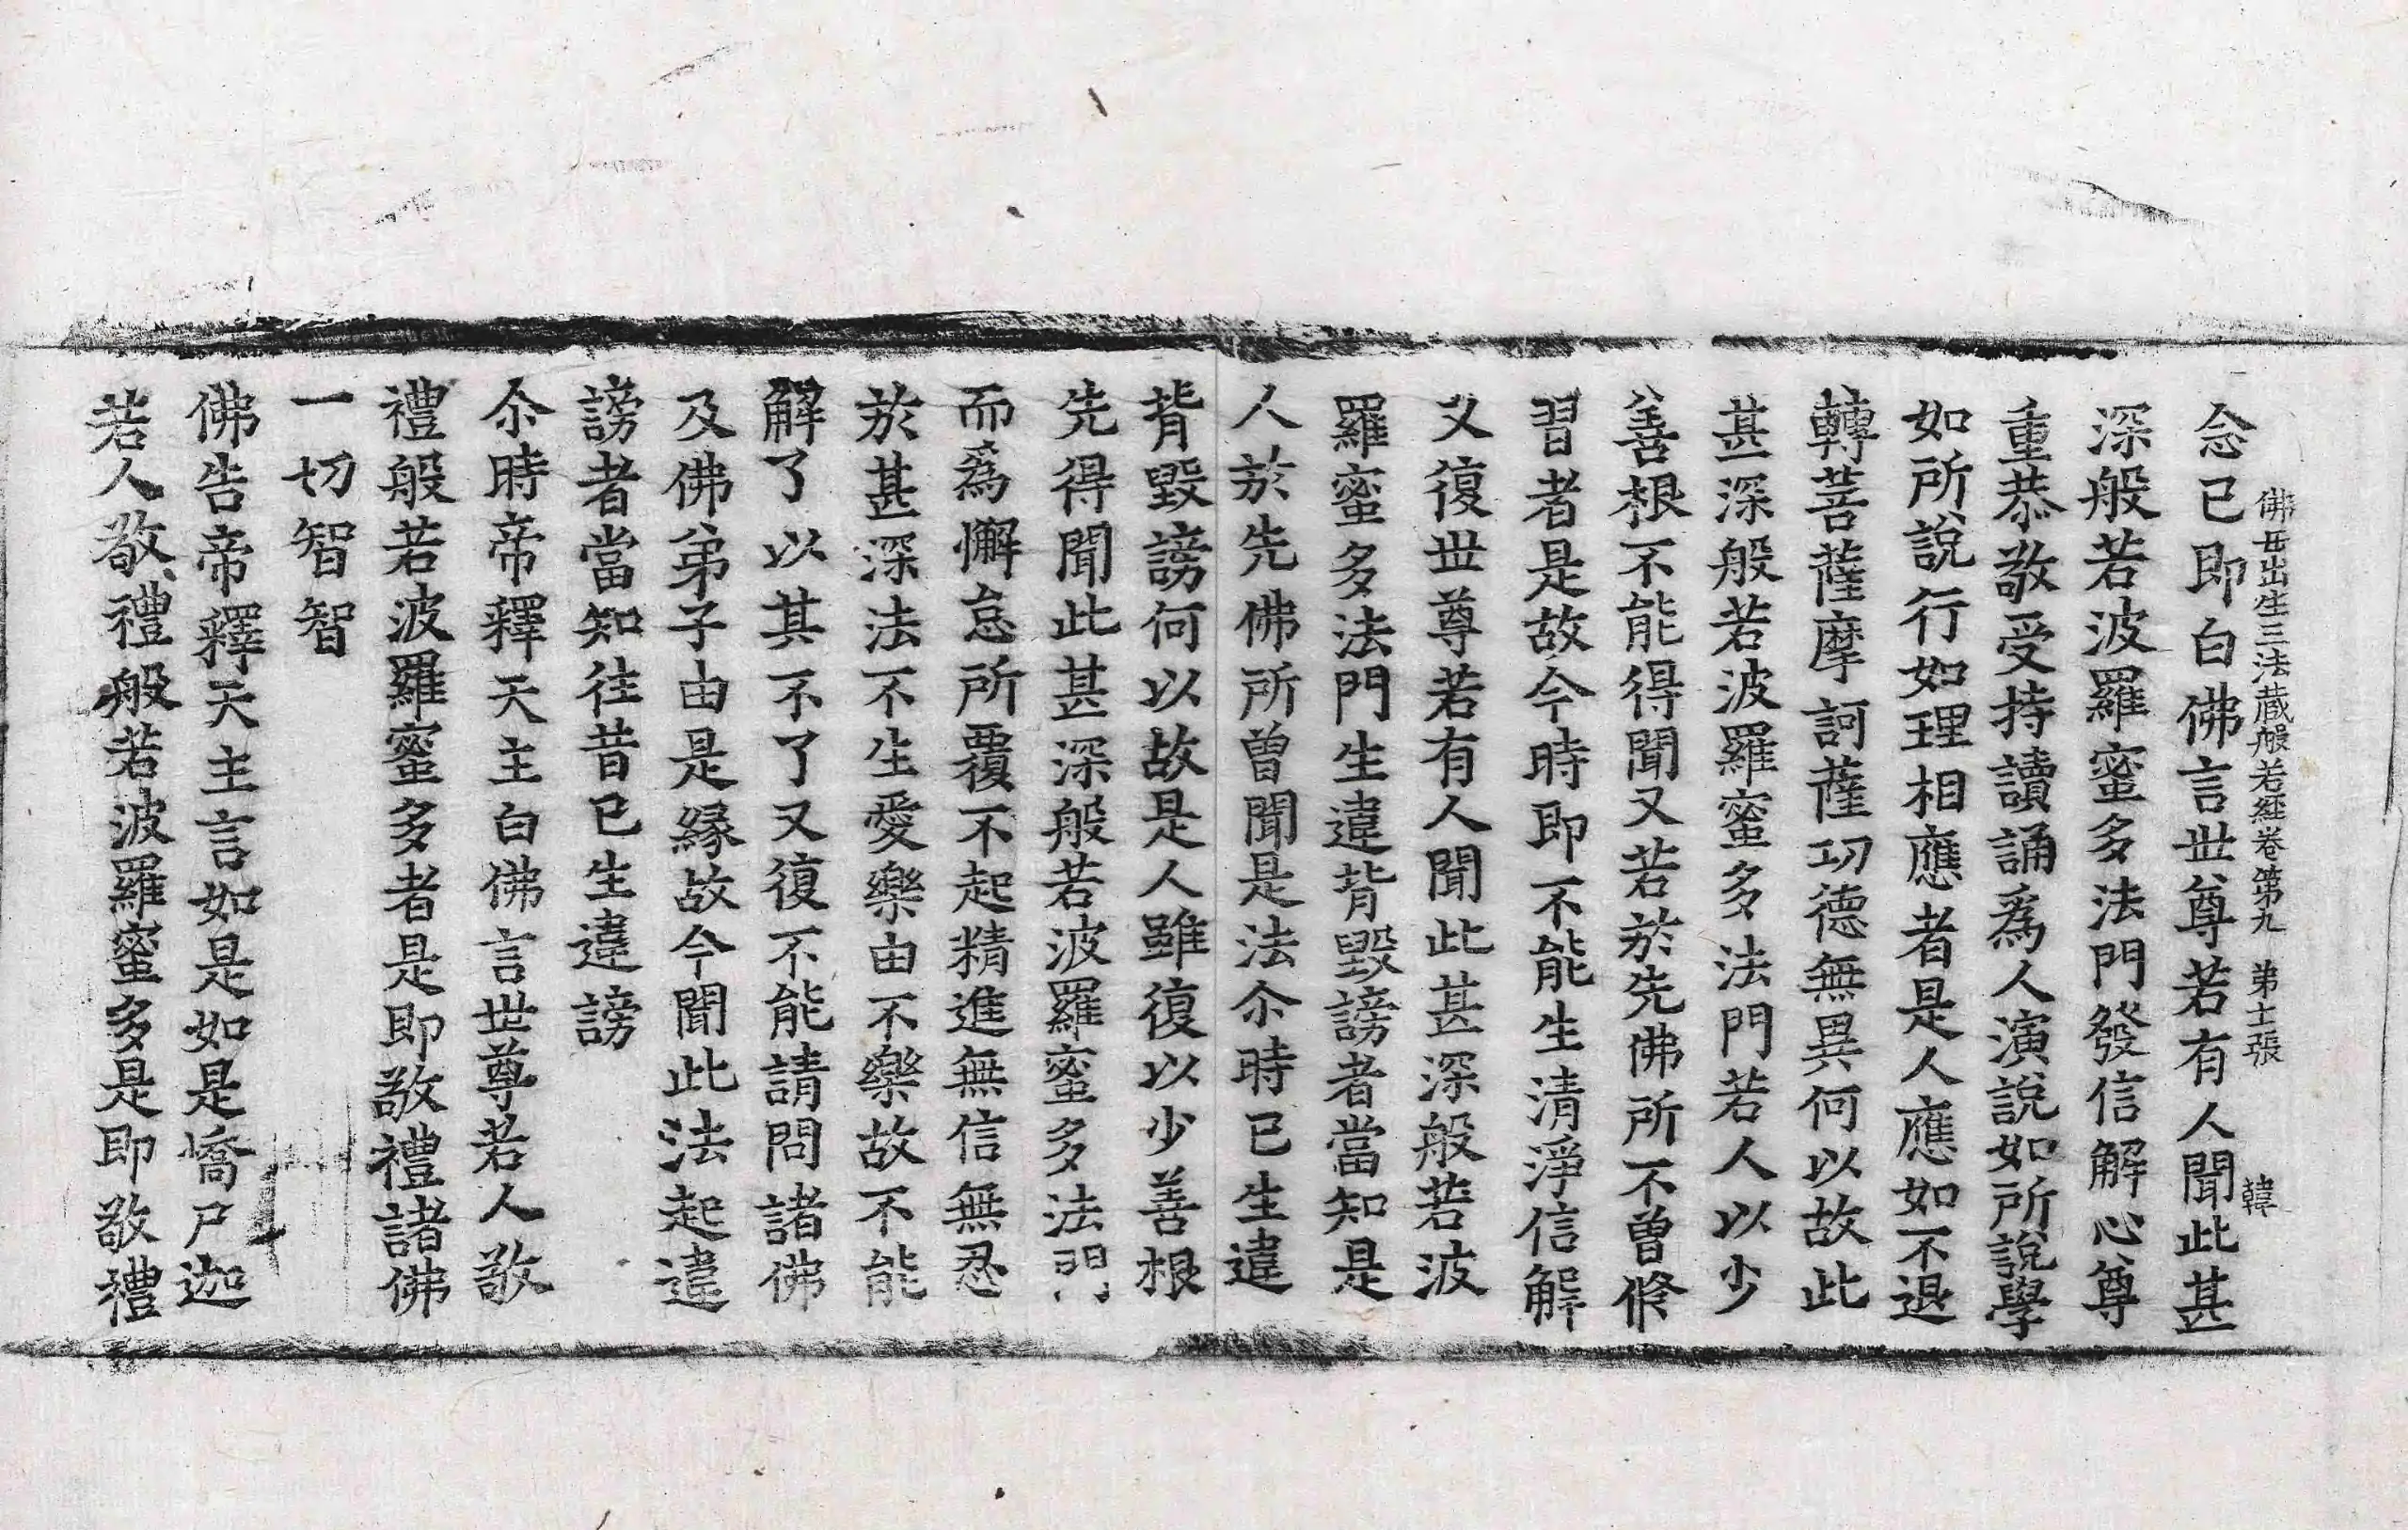 佛母出生三法蔵般若經卷第九 第十二張 韓
念已即白佛言世尊若有人聞此甚
深般若波羅蜜多法門發信解心尊
重恭敬受持讀誦爲人演說如所說學
如所說行如理相應者是人應如不退
轉菩薩摩訶薩功德無異何以故此
甚深般若波羅蜜多法門若人以少
善根不能得聞又若於先佛所不曾修
習者是故今時即不能生清淨信解
又復世尊若有人聞此甚深般若波
羅蜜多法門生違背毀謗者當知是
人於先佛所曾聞是法尒時已生違
背毀謗何以故是人雖復以少善根
先得聞此甚深般若波羅蜜多法門
而爲懈怠所覆不起精進無信無忍
於甚深法不生愛樂由不樂故不能
解了以其不了又復不能請問諸佛
及佛弟子由是緣故今聞此法起違
謗者當知往昔已生違謗
尒時帝釋天主白佛言世尊若人敬
禮般若波羅蜜多者是即敬禮諸佛
一切智智
佛告帝釋天主言如是如是憍尸迦
若人敬禮般若波羅蜜多是即敬禮